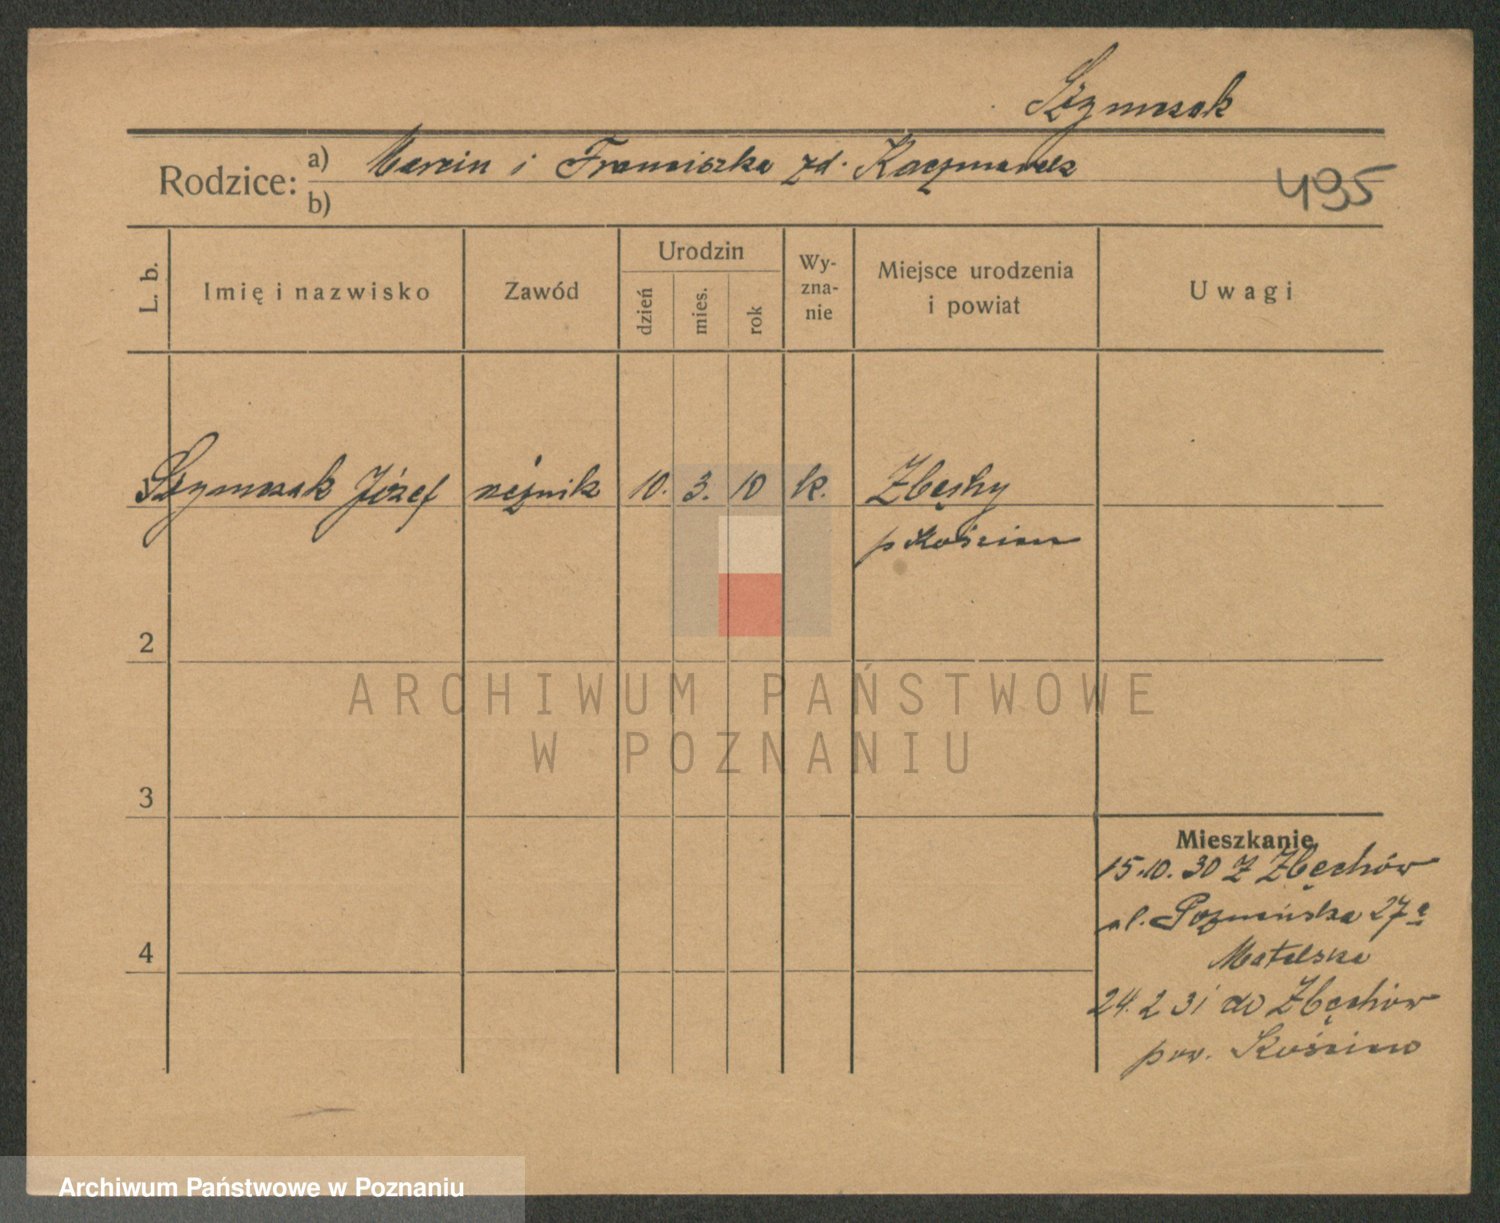 Szymczak
Rodzice: a) Marcin i Franciszka zd. Kaczmarek
b)
495
L. b.
Imię i nazwisko
Zawód
Urodzin
dzień
mies.
rok
Wy-
zna-
nie
Miejsce urodzenia
i powiat
Uwagi
Szymczak Józef rzeźnik 10. 3. 10 k. Zbęchy
p Kościan
2
3
4
Mieszkanie
15.10.30 z Zbęchów
ul. Poznańska 27a
24.2 31 do Zbęchów
pow. Kościan
ARCHIWUM PAŃSTWOWE
W POZNANIU
Archiwum Państwowe w Poznaniu